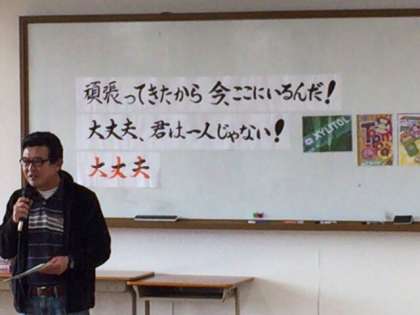 頑張ってきたから今、ここにいるんだ!
大丈夫、君は一人じゃない!
大丈夫
XYLITOL